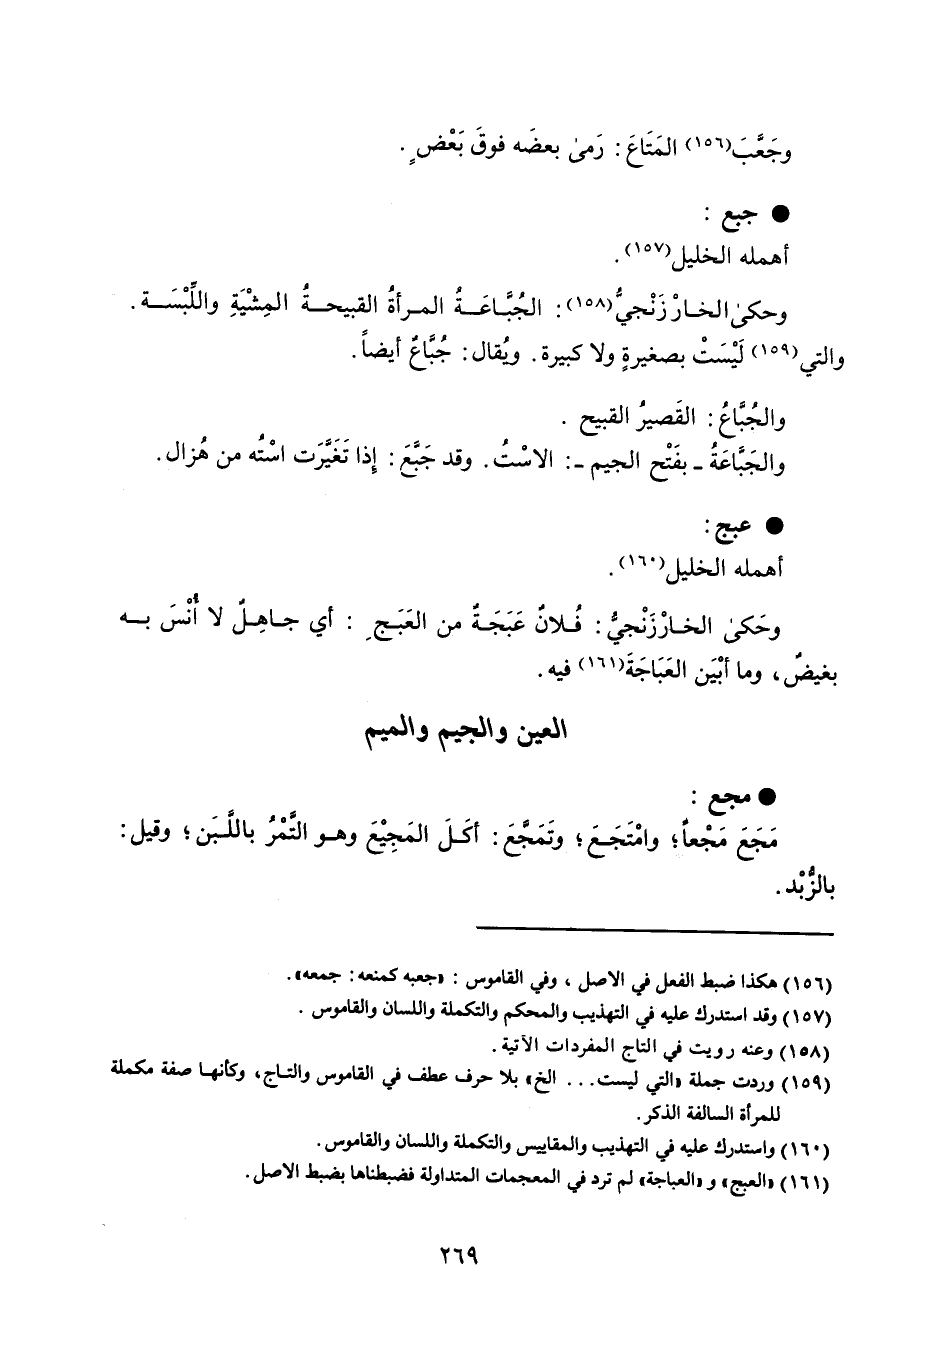 وجَعَّبَ(١٥٦) المَتَاعَ: رَمىٰ بعضَه فوقَ بَعْضٍ.
● جبع :
أهمله الخليل(١٥٧).
وحكىٰ الخارْزَنْجيُّ(١٥٨): الجُبَّاعَةُ المرأةُ القبيحةُ المِشْيَةِ واللِّبْسَة.
والتي(١٥٩) لَيْسَتْ بصغيرةٍ ولا كبيرة. ويُقال: جُبَّاعٌ أيضاً.
والجُبَّاعُ: القَصيرُ القبيح .
والجَبَّاعَةُ ـ بفَتْح الجيم ـ: الاسْتُ. وقد جَبَّعَ: إذا تَغَيَّرَت اسْتُه من هُزال.
● عبج:
أهمله الخليل(١٦٠).
وحَكىٰ الخارْزَنْجيُّ: فُلانٌ عَبَجَةٌ من العَبَجِ : أي جاهِلٌ لا أُنْسَ به
بغيضٌ، وما أبْيَن العَبَاجَةَ(١٦١) فيه.
العين والجيم والميم
● مجع :
مَجَعَ مَجْعاً؛ وامْتَجَعَ؛ وتَمَجَّعَ: أكَلَ المَجِيْعَ وهو التَّمْرُ باللَّبَن؛ وقيل:
بالزُّبْد.
(١٥٦) هكذا ضبط الفعل في الاصل ، وفي القاموس : «جعبه كمنعه: جمعه».
(١٥٧) وقد استدرك عليه في التهذيب والمحكم والتكملة واللسان والقاموس .
(١٥٨) وعنه رويت في التاج المفردات الآتية .
(١٥٩) وردت جملة «التي ليست... الخ» بلا حرف عطف في القاموس والتاج، وكأنها صفة مكملة
للمرأة السالفة الذكر.
(١٦٠) واستدرك عليه في التهذيب والمقاييس والتكملة واللسان والقاموس.
(١٦١) «العبج» و «العباجة» لم ترد في المعجمات المتداولة فضبطناها بضبط الاصل.
٢٦٩